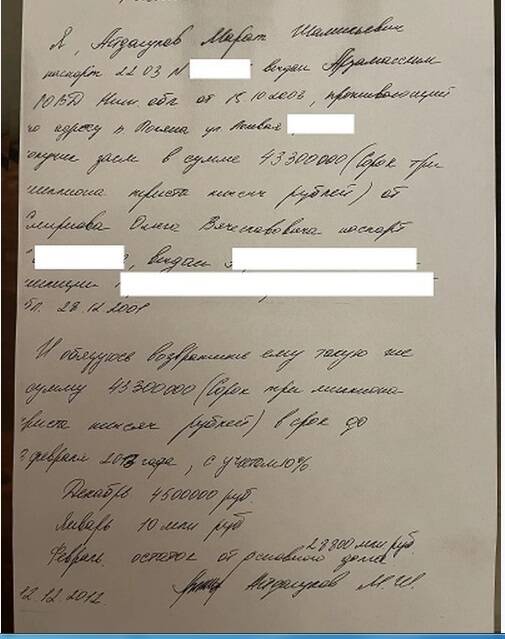 Я, Айдагулов Марат Шамильевич
паспорт 22 03 N выдан Арзамасским
РОВД Ниж. обл от 13.10.2003, проживающий
по адресу п. Поляна ул. Новая
получил заем в сумме 43300000 (Сорок три
миллиона триста тысяч рублей) от
Смирнова Олега Вячеславовича паспорт
, выдан
28.12.2001
И обязуюсь возвратить ему такую же
сумму 43300000 (Сорок три миллиона
триста тысяч рублей) в срок до
февраля 2013 года, с учетом 10%.
Декабрь 4500000 руб
Январь 10 млн руб
Февраль остаток от основного долга 28800 млн. руб
12.12.2012 Айдагулов М.Ш.